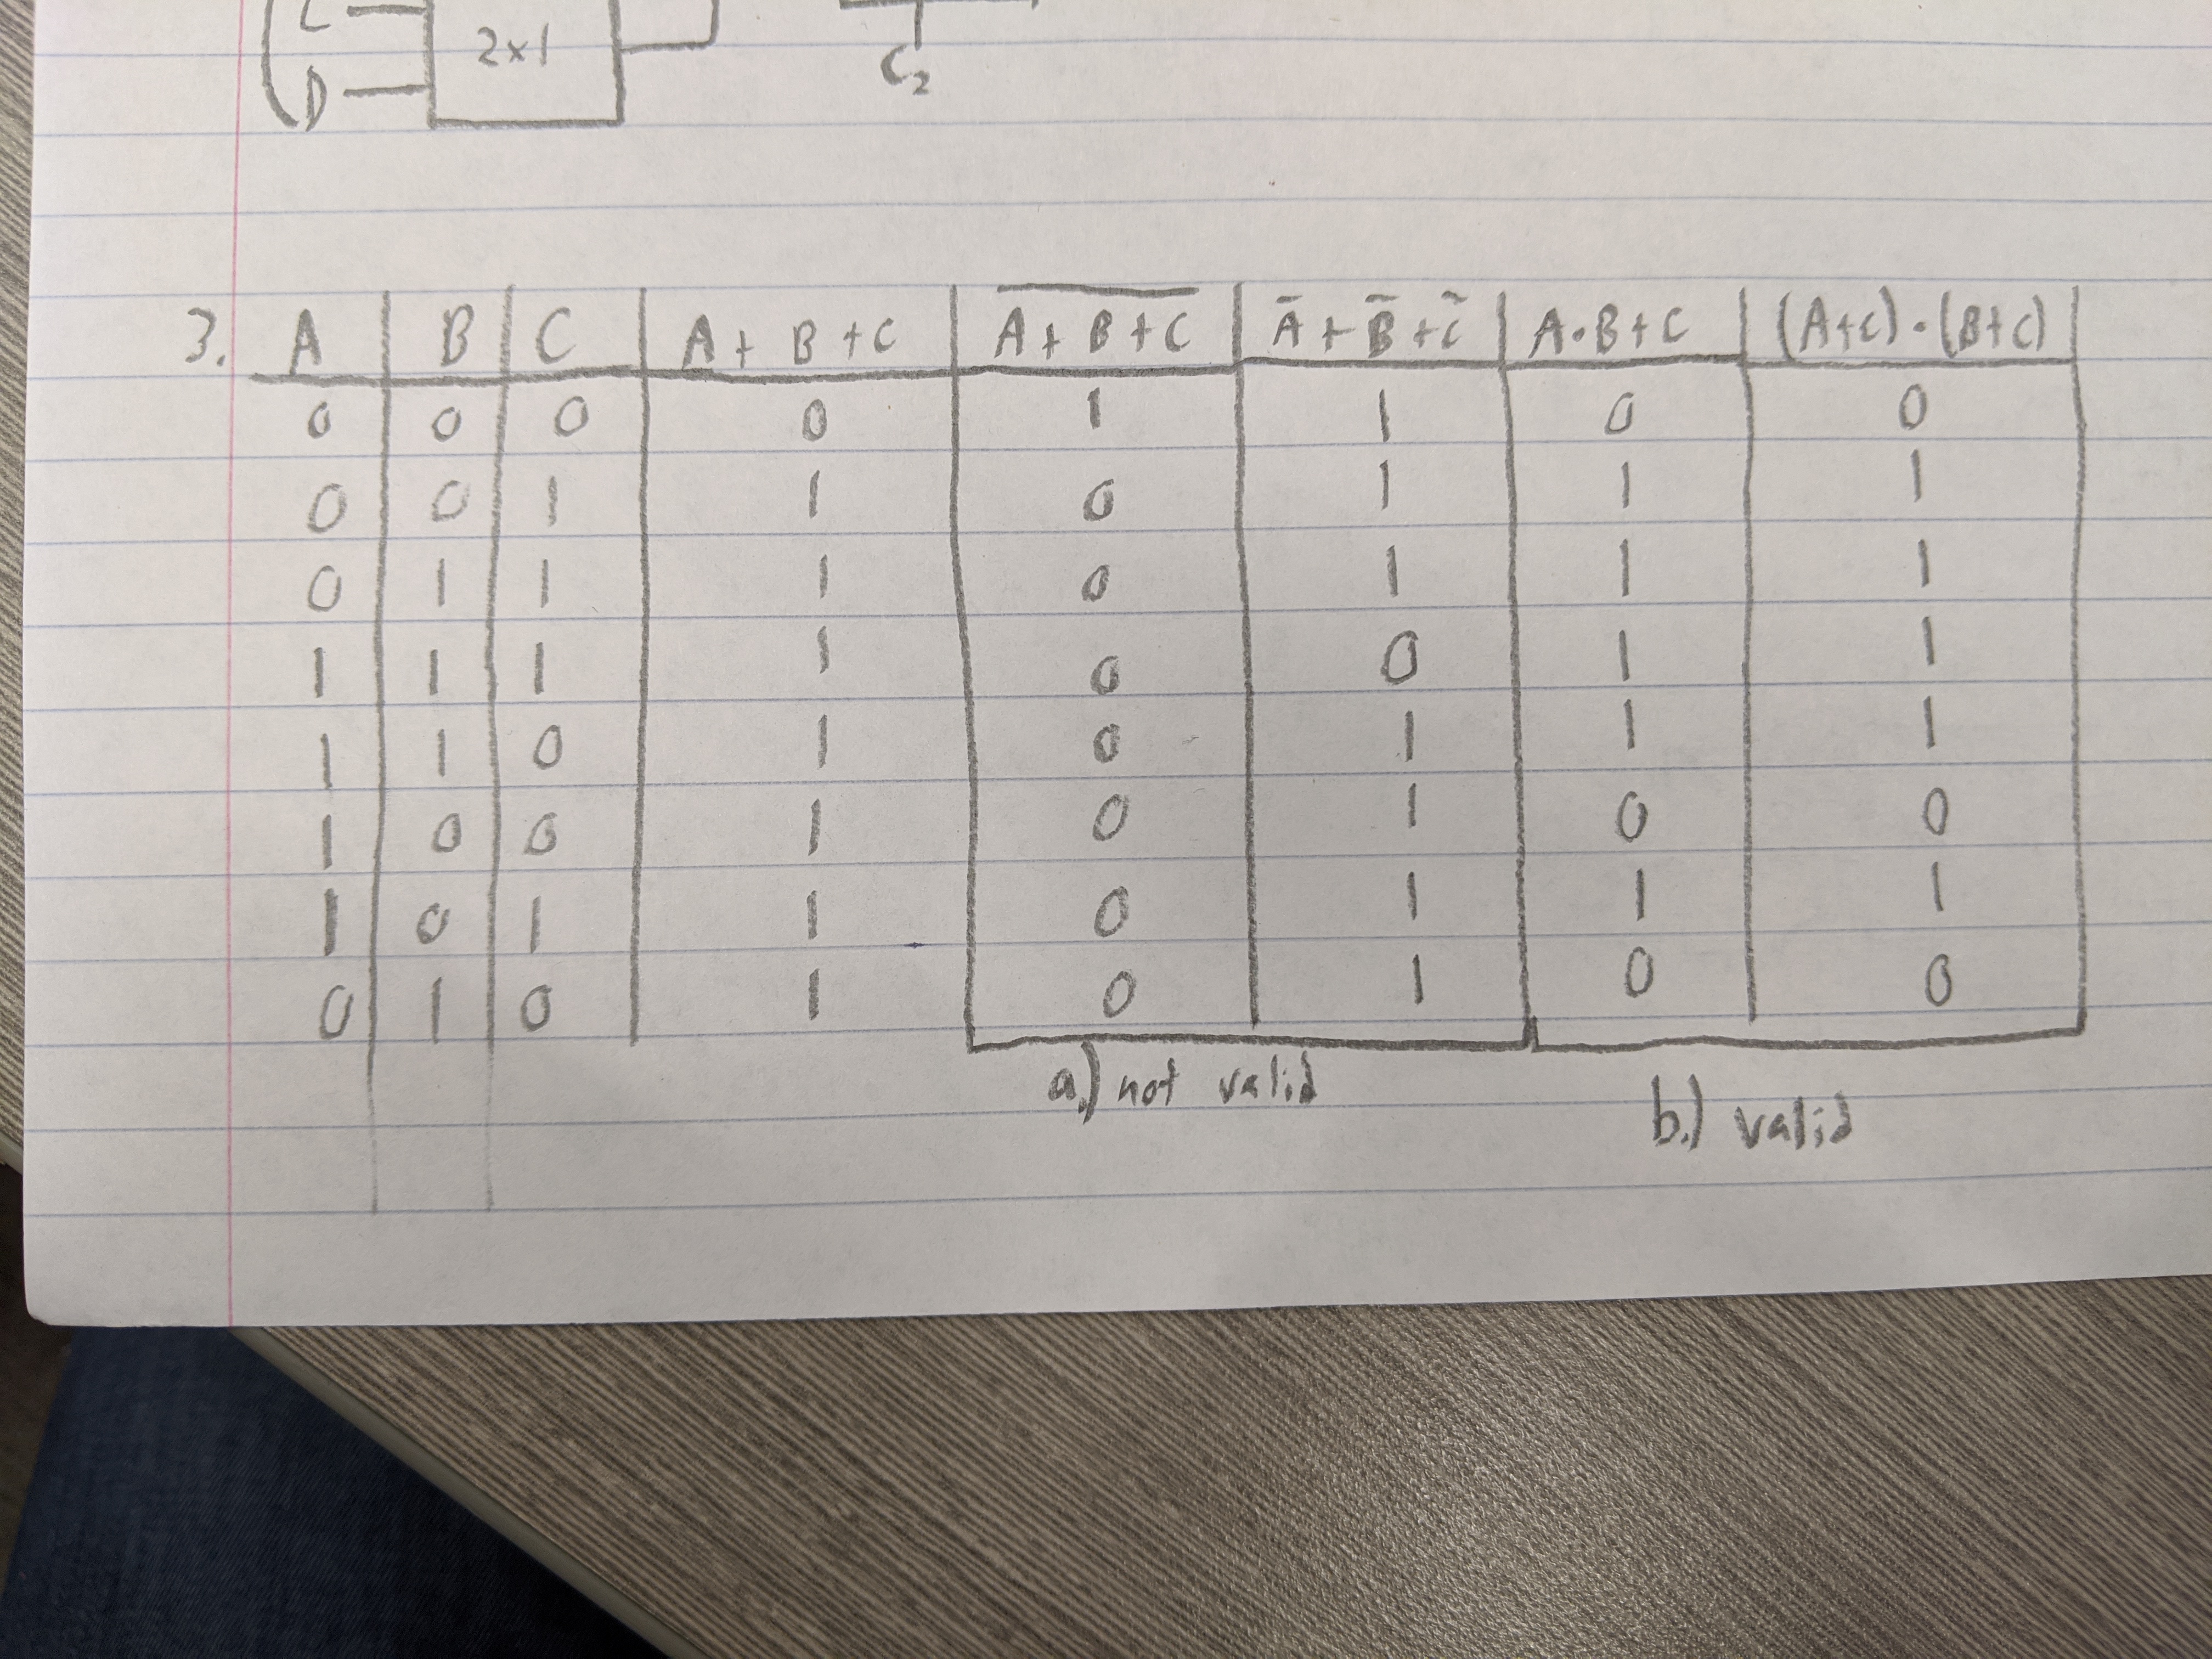 D
2x1
C₂
3. A | B | C | A + B + C | \overline{A + B + C} | Ā + B̄ + C̄ | A·B+C | (A+C)·(B+C)
0 | 0 | 0 | 0 | 1 | 1 | 0 | 0
0 | 0 | 1 | 1 | 0 | 1 | 1 | 1
0 | 1 | 1 | 1 | 0 | 1 | 1 | 1
1 | 1 | 1 | 1 | 0 | 0 | 1 | 1
1 | 1 | 0 | 1 | 0 | 1 | 1 | 1
1 | 0 | 0 | 1 | 0 | 1 | 0 | 0
1 | 0 | 1 | 1 | 0 | 1 | 1 | 1
0 | 1 | 0 | 1 | 0 | 1 | 0 | 0
a.) not valid
b.) valid